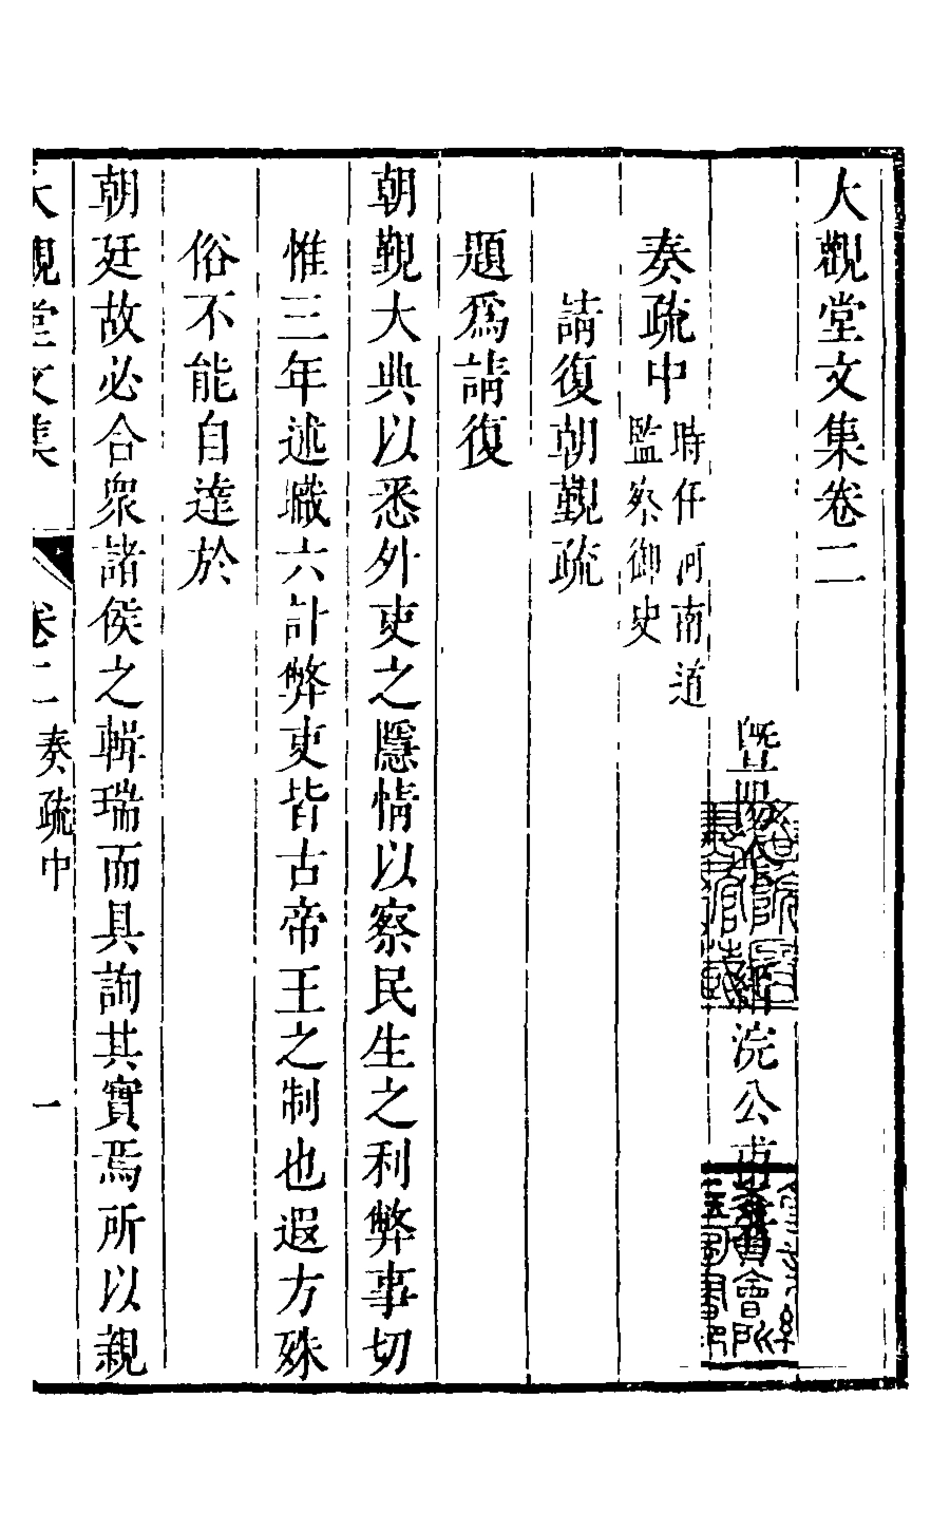 大觀堂文集卷二
暨陽
縉浣公甫著
奏疏中
時任河南道
監察御史
請復朝覲疏
題爲請復
朝覲大典以悉外吏之隱情以察民生之利弊事切
惟三年述職六計弊吏皆古帝王之制也遐方殊
俗不能自達於
朝廷故必合衆諸侯之輯瑞而具詢其實焉所以親
大觀堂文集
卷二
奏疏中
一